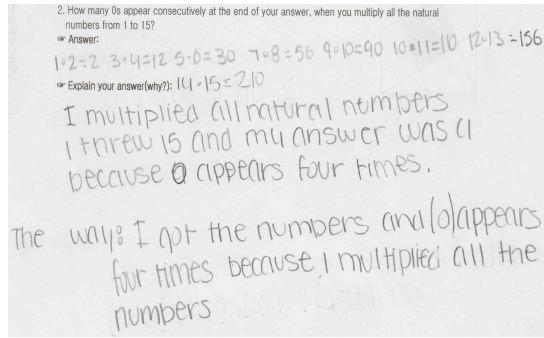 2. How many 0s appear consecutively at the end of your answer, when you multiply all the natural
numbers from 1 to 15?
☞ Answer:
1·2=2 3·4=12 5·6=30 7·8=56 9·10=90 10·11=110 12·13=156
☞ Explain your answer(why?): 14·15=210
I multiplied all natural numbers
1 threw 15 and my answer was 4
because 0 appears four times.
The way: I got the numbers and (0) appears
four times because I multiplied all the
numbers